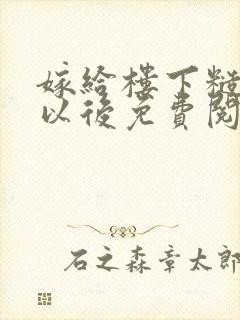 嫁給樓下糙
以後免費閱
石之森章太郎